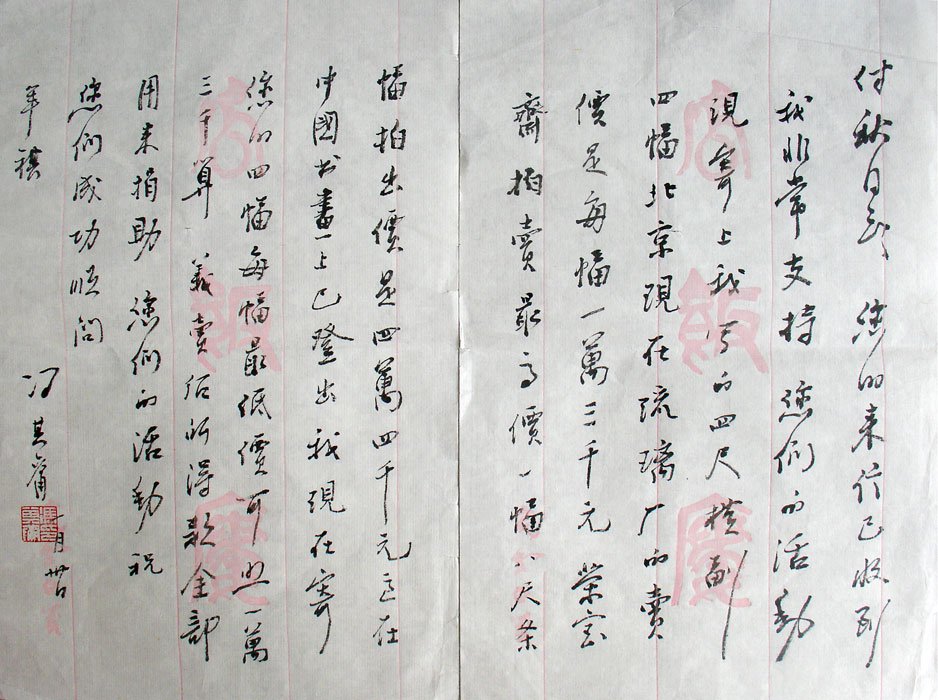 付秋 您的来信已收到
我非常支持 您们的活動
現寄上我写的四尺横副
四幅北京現在琉璃厂的賣
價是每幅一萬三千元 榮宝
齋拍賣最高價一幅八尺条
幅拍出價是四萬四千元這在
中國书畫上已登出我現在寄
您的四幅每幅最低價可以一萬
三千算 義賣后所得款全部
用来捐助 您们的活動祝
您们成功順問
年禧
冯其庸
一月卅日